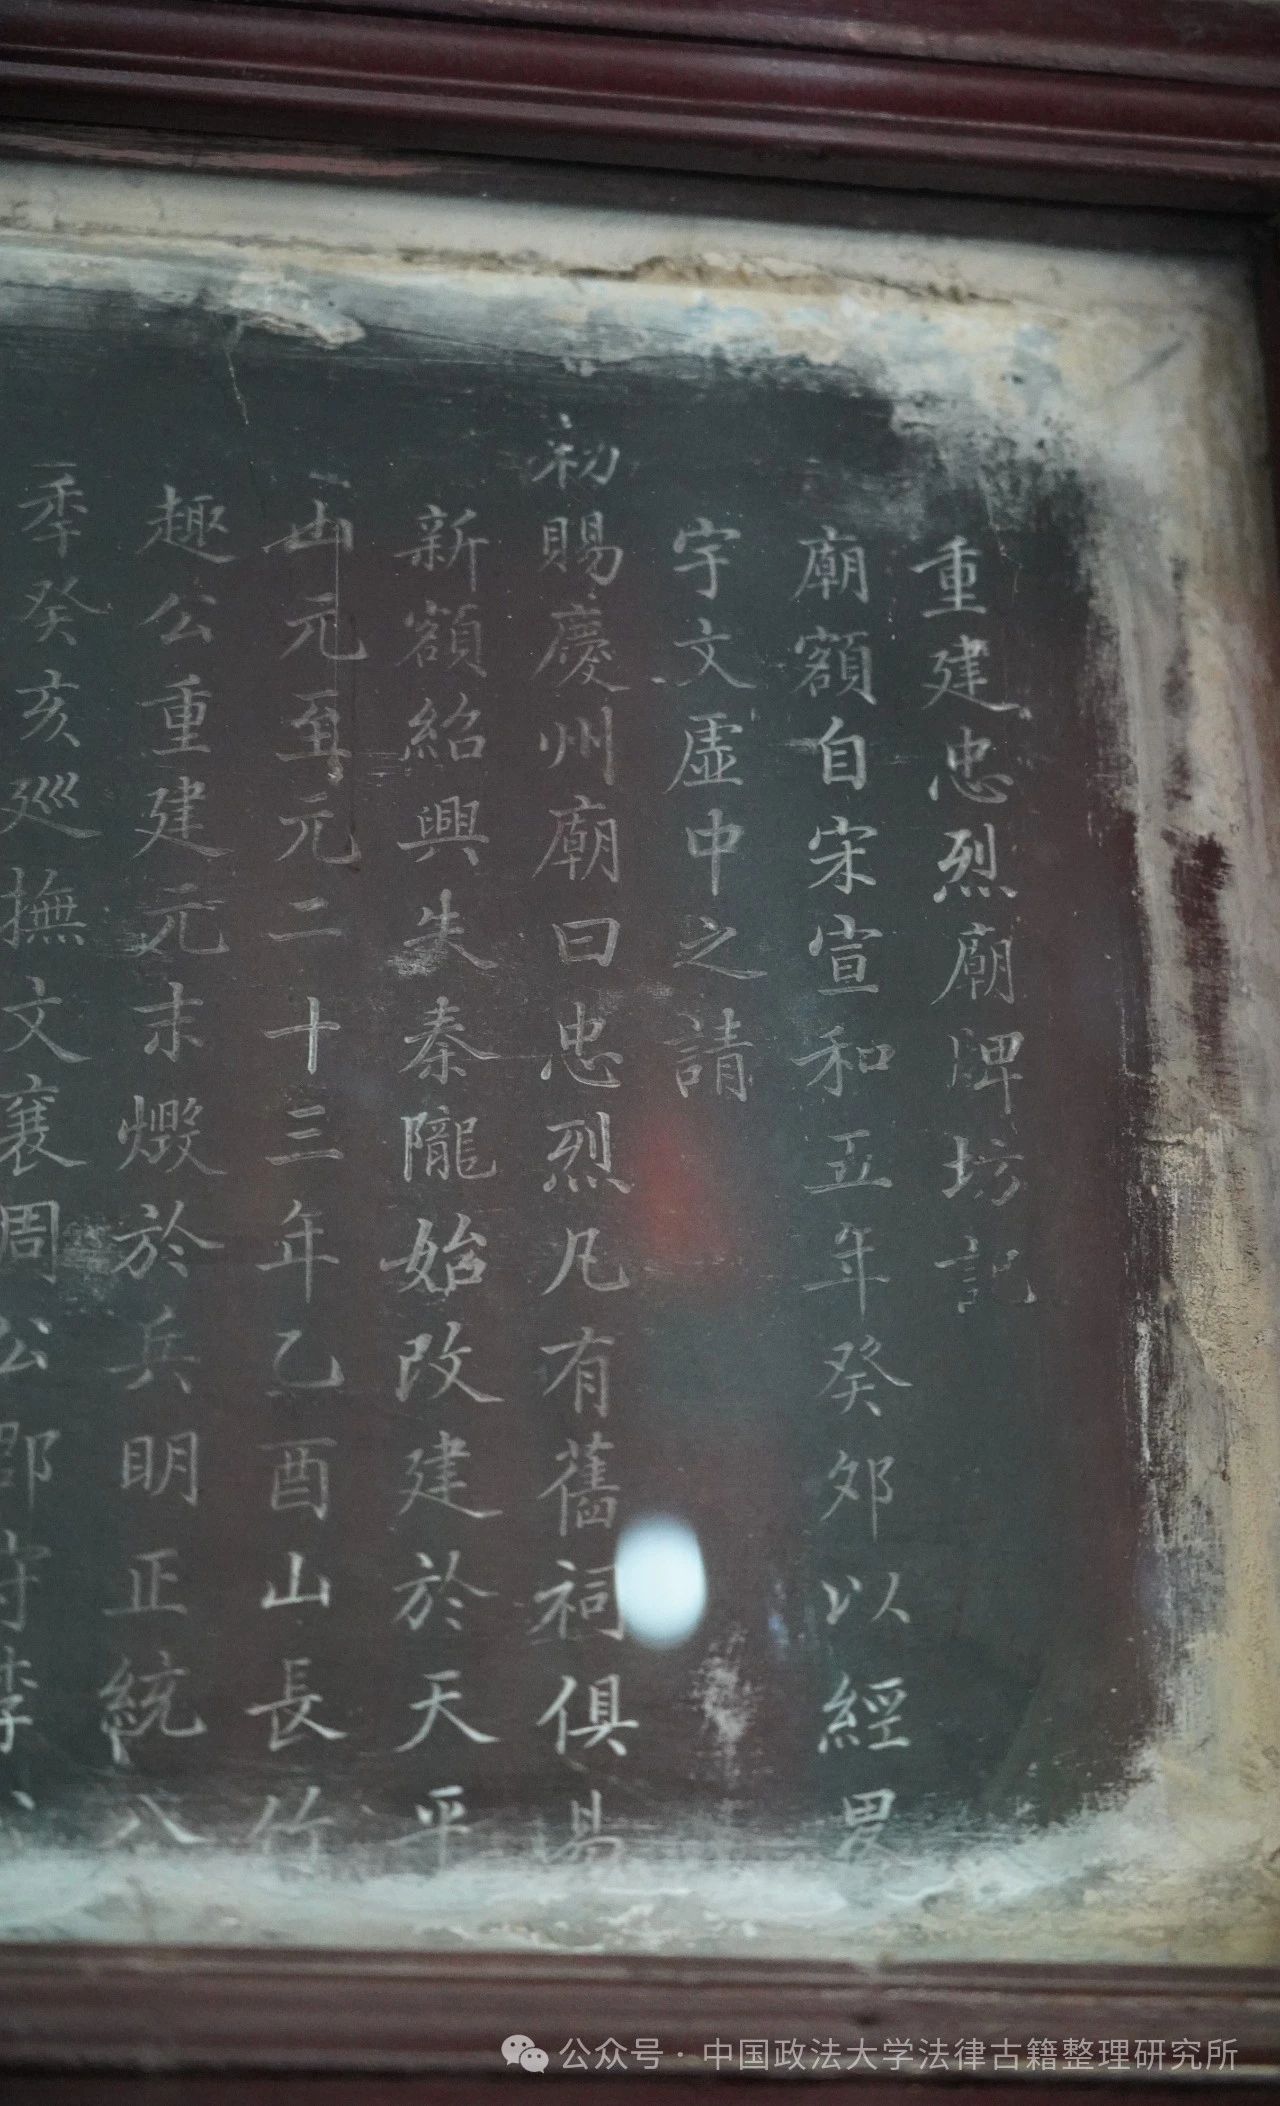 重建忠烈廟牌坊記
廟額自宋宣和五年癸卯以經畧
宇文虛中之請
初賜慶州廟曰忠烈凡有舊祠俱易
新額紹興失秦隴始改建於天平
山元至元二十三年乙酉山長竹
趣公重建元末燬於兵明正統八
年癸亥廵撫文襄周公郡守李
公众号 · 中国政法大学法律古籍整理研究所